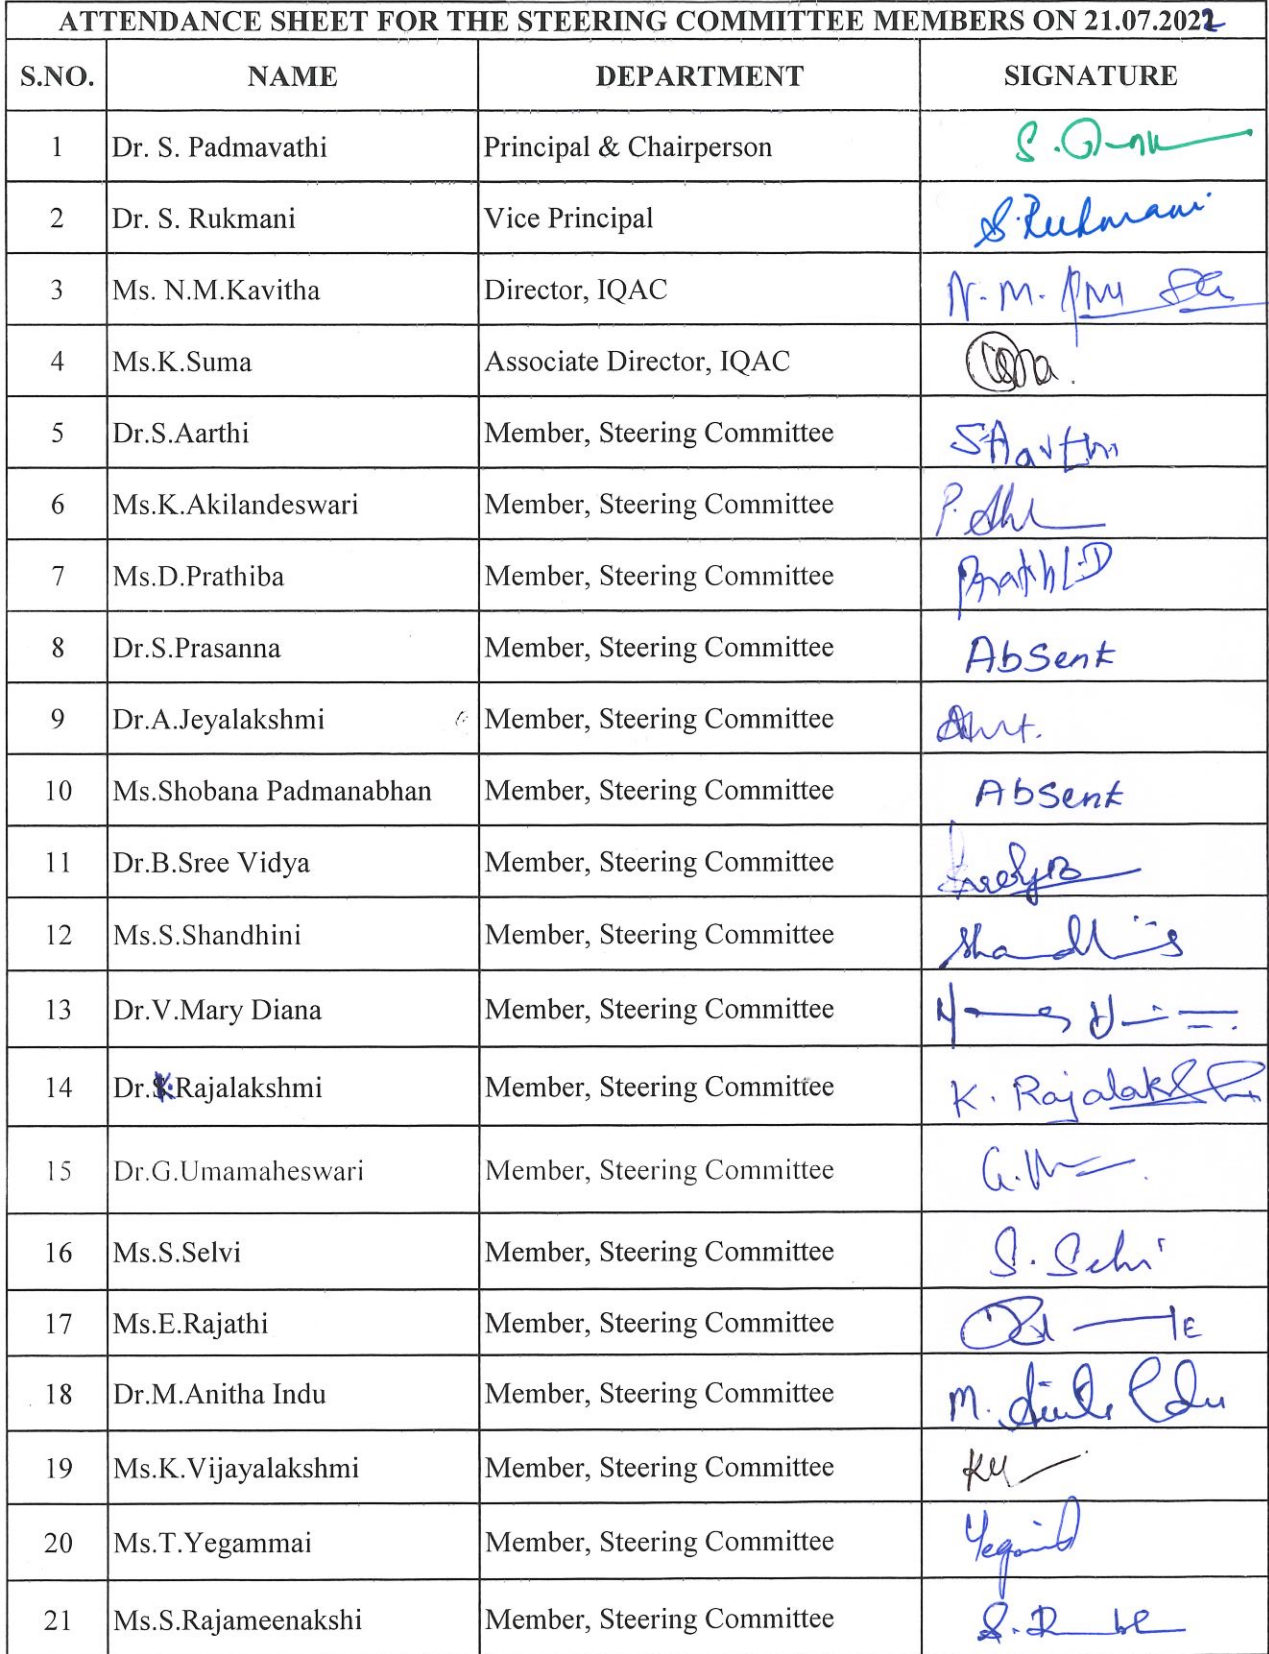 ATTENDANCE SHEET FOR THE STEERING COMMITTEE MEMBERS ON 21.07.2022
S.NO. NAME DEPARTMENT SIGNATURE
1 Dr. S. Padmavathi Principal & Chairperson
2 Dr. S. Rukmani Vice Principal S.Rukmani
3 Ms. N.M.Kavitha Director, IQAC N.M.
4 Ms.K.Suma Associate Director, IQAC
5 Dr.S.Aarthi Member, Steering Committee S Aarthi
6 Ms.K.Akilandeswari Member, Steering Committee
7 Ms.D.Prathiba Member, Steering Committee
8 Dr.S.Prasanna Member, Steering Committee Absent
9 Dr.A.Jeyalakshmi Member, Steering Committee
10 Ms.Shobana Padmanabhan Member, Steering Committee Absent
11 Dr.B.Sree Vidya Member, Steering Committee
12 Ms.S.Shandhini Member, Steering Committee
13 Dr.V.Mary Diana Member, Steering Committee
14 Dr.K.Rajalakshmi Member, Steering Committee K. Rajalakshmi
15 Dr.G.Umamaheswari Member, Steering Committee
16 Ms.S.Selvi Member, Steering Committee S. Selvi
17 Ms.E.Rajathi Member, Steering Committee
18 Dr.M.Anitha Indu Member, Steering Committee M. Anitha Indu
19 Ms.K.Vijayalakshmi Member, Steering Committee
20 Ms.T.Yegammai Member, Steering Committee
21 Ms.S.Rajameenakshi Member, Steering Committee